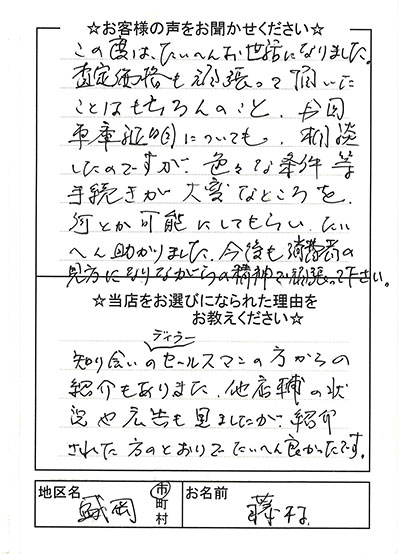 ☆お客様の声をお聞かせください☆
この度は、たいへんお世話になりました。
査定価格も頑張って頂いた
ことはもちろんのこと、今回
車庫証明についても、相談
したのですが、色々な条件等
手続きが大変なところを、
何とか可能にしてもらい、たい
へん助かりました。今後も消費者の
見方になりながらの精神で頑張って下さい。
☆当店をお選びになられた理由を
お教えください☆
ディラー
知り合いのセールスマンの方からの
紹介もありました、他店輔の状
況や広告も見ましたが、紹介
された方のとおりでたいへん良かったです。
地区名 盛岡 市町村 お名前 藤村